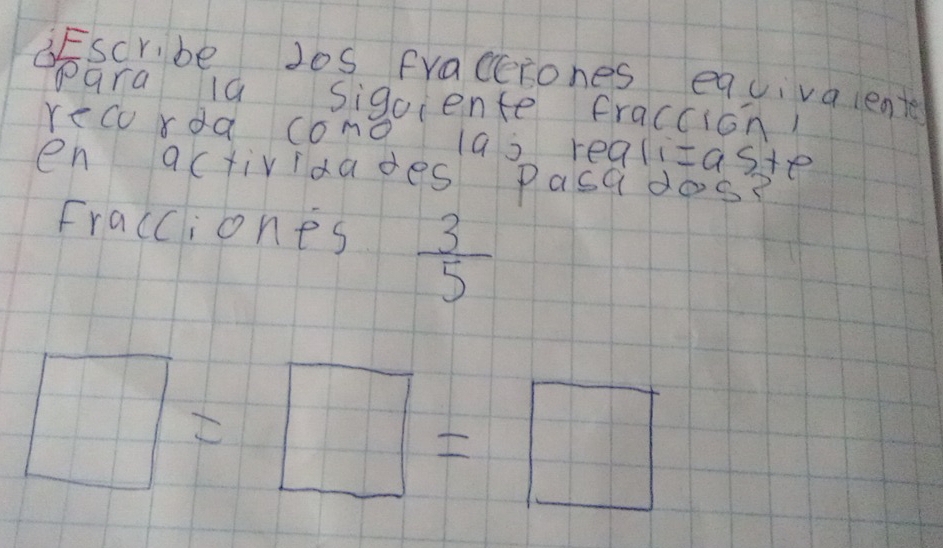 ¿Escribe dos fracciones equivalentes
para la siguiente fracción,
recorda como las realizaste
en actividades pasadas?
Fracciones 3/5
= =